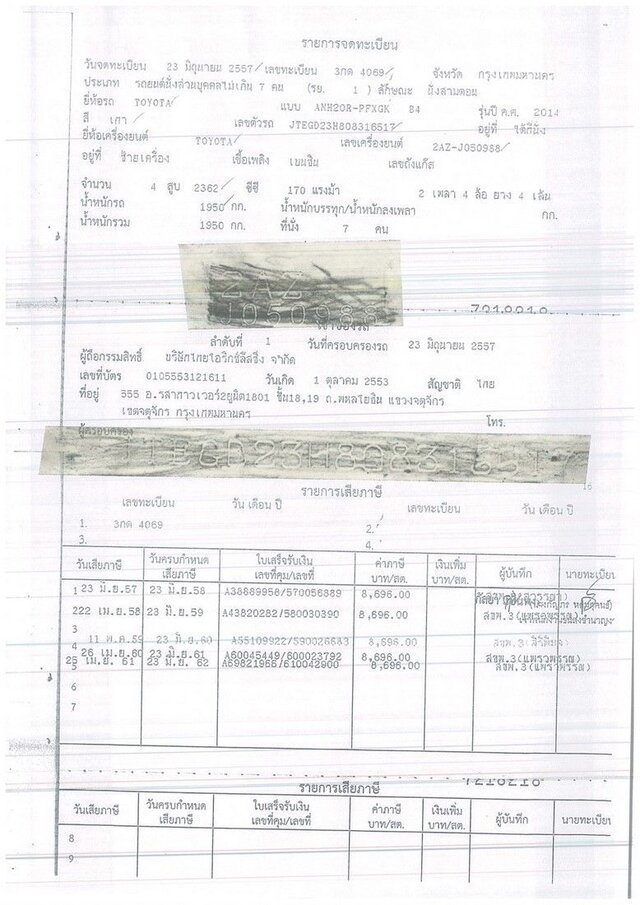 รายการจดทะเบียน
วันจดทะเบียน 23 มิถุนายน 2557 เลขทะเบียน 3กด 4069 จังหวัด กรุงเทพมหานคร
ประเภท รถยนต์นั่งส่วนบุคคลไม่เกิน 7 คน (รย. 1 ) ลักษณะ นั่งสามตอน
ยี่ห้อรถ TOYOTA แบบ ANH20R-PFXGK B4 รุ่นปี ค.ศ. 2014
สี เทา เลขตัวรถ JTEGD23H808316517 อยู่ที่ ใต้ที่นั่ง
ยี่ห้อเครื่องยนต์ TOYOTA เลขเครื่องยนต์ 2AZ-J050988
อยู่ที่ ซ้ายเครื่อง เชื้อเพลิง เบนซิน เลขถังแก๊ส
จำนวน 4 สูบ 2362 ซีซี 170 แรงม้า 2 เพลา 4 ล้อ ยาง 4 เส้น
น้ำหนักรถ 1950 กก. น้ำหนักบรรทุก/น้ำหนักลงเพลา กก.
น้ำหนักรวม 1950 กก. ที่นั่ง 7 คน
2AZ
J050988
เจ้าของรถ
ลำดับที่ 1 วันที่ครอบครองรถ 23 มิถุนายน 2557
ผู้ถือกรรมสิทธิ์ บริษัทไทยโอริกซ์ลีสซิ่ง จำกัด
เลขที่บัตร 0105553121611 วันเกิด 1 ตุลาคม 2553 สัญชาติ ไทย
ที่อยู่ 555 อ.รสาทาวเวอร์2ยูนิต1801 ชั้น18,19 ถ.พหลโยธิน แขวงจตุจักร
เขตจตุจักร กรุงเทพมหานคร
โทร.
ผู้ครอบครอง
JTEGD23H808316517
16
รายการเสียภาษี
เลขทะเบียน วัน เดือน ปี เลขทะเบียน วัน เดือน ปี
1. 3กด 4069 2.
3. 4.
วันเสียภาษี วันครบกำหนดเสียภาษี ใบเสร็จรับเงิน เลขที่คุม/เลขที่ ค่าภาษี บาท/สต. เงินเพิ่ม บาท/สต. ผู้บันทึก นายทะเบียน
1 23 มิ.ย.57 23 มิ.ย.58 A38889958/570056889 8,696.00
2 22 เม.ย.58 23 มิ.ย.59 A43820282/580030390 8,696.00 สขพ.3(แพรวพรรณ)
3
11 พ.ค.59 23 มิ.ย.60 A55109922/590026683 8,696.00
4 26 เม.ย.60 23 มิ.ย.61 A60045449/600023792 8,696.00 สขพ.3(แพรวพรรณ)
5 25 เม.ย. 61 23 มิ.ย. 62 A69821966/610042900 8,696.00 สขพ.3(แพรวพรรณ)
6
7
รายการเสียภาษี
วันเสียภาษี วันครบกำหนดเสียภาษี ใบเสร็จรับเงิน เลขที่คุม/เลขที่ ค่าภาษี บาท/สต. เงินเพิ่ม บาท/สต. ผู้บันทึก นายทะเบียน
8
9